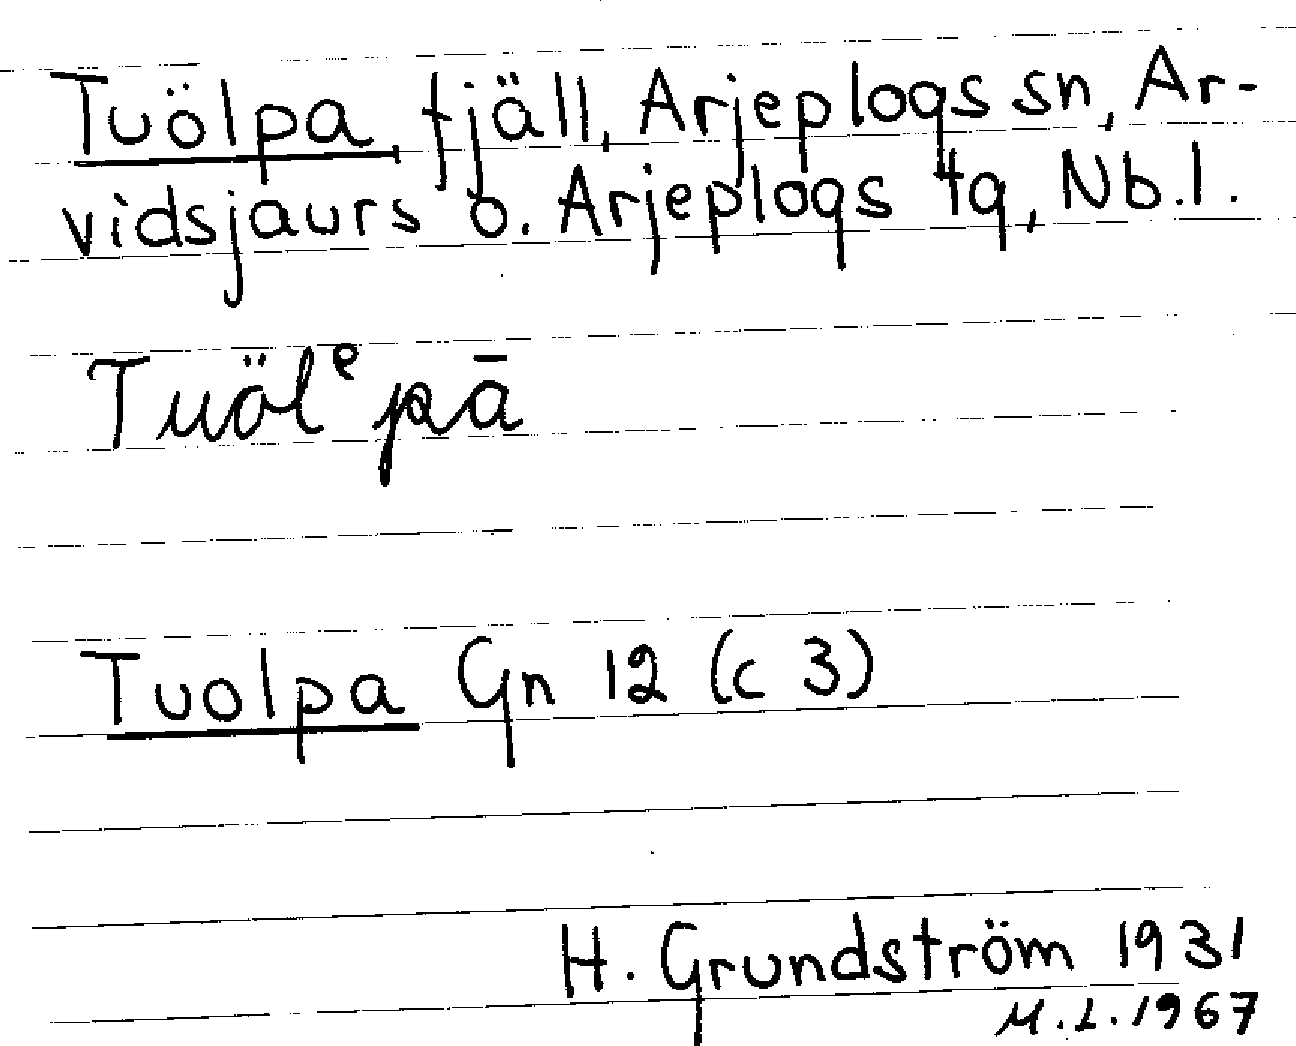 Tuölpa, fjäll, Arjeplogs sn, Ar-
vidsjaurs o. Arjeplogs tg, Nb.l.
Tuölᵉpā
Tuolpa Gn 12 (c 3)
H. Grundström 1931
M.L.1967